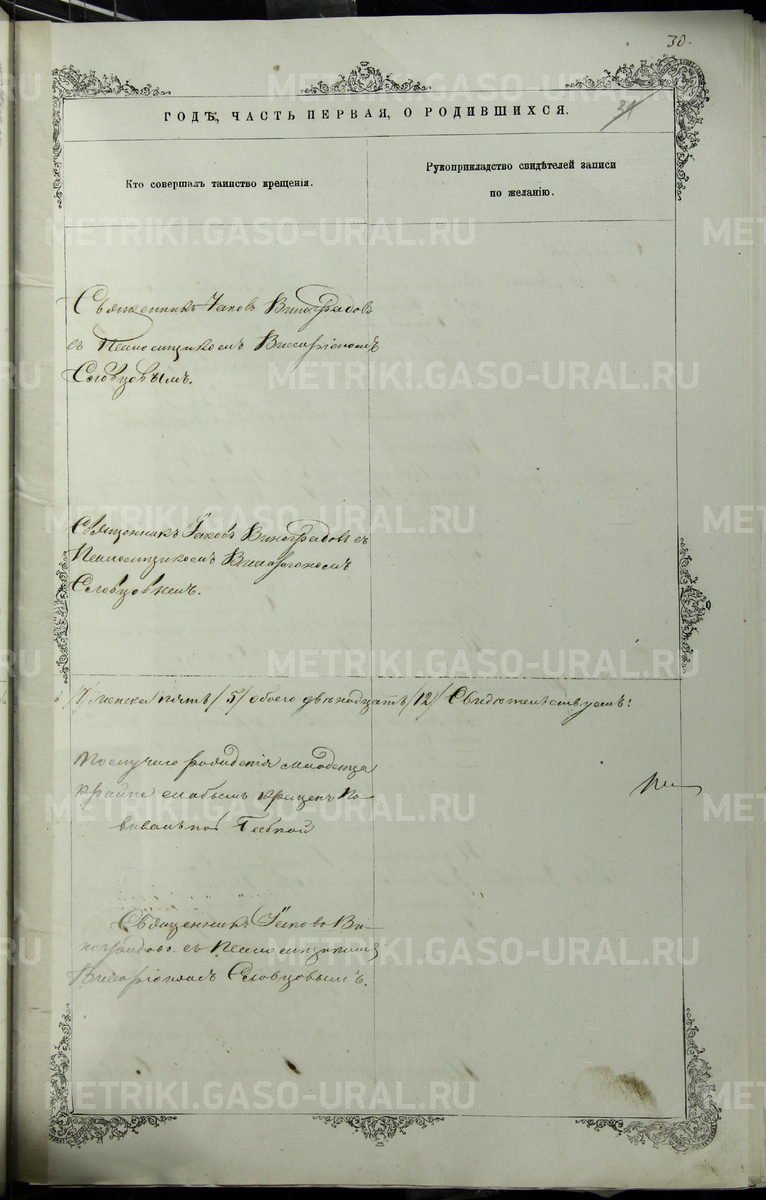 30.
ГОДѢ, ЧАСТЬ ПЕРВАЯ, О РОДИВШИХСЯ.
Кто совершалъ таинство крещенія.
Рукоприкладство свидѣтелей записи
по желанію.
Священникъ Іаковъ Виноградовъ
съ Псаломщикомъ Виссаріономъ
Словцовымъ.
Священникъ Іаковъ Виноградовъ съ
Псаломщикомъ Виссаріономъ
Словцовымъ.
/7/ женска пять /5/ обоего двѣнадцать /12/ Свидѣтельствуемъ:
По случаю рожденія младенца
крайне слабымъ крещенъ По-
вивальной Бабкой
Священникъ Іаковъ Ви-
ноградовъ съ Псаломщикомъ
Виссаріономъ Словцовымъ.
METRIKI.GASO-URAL.RU